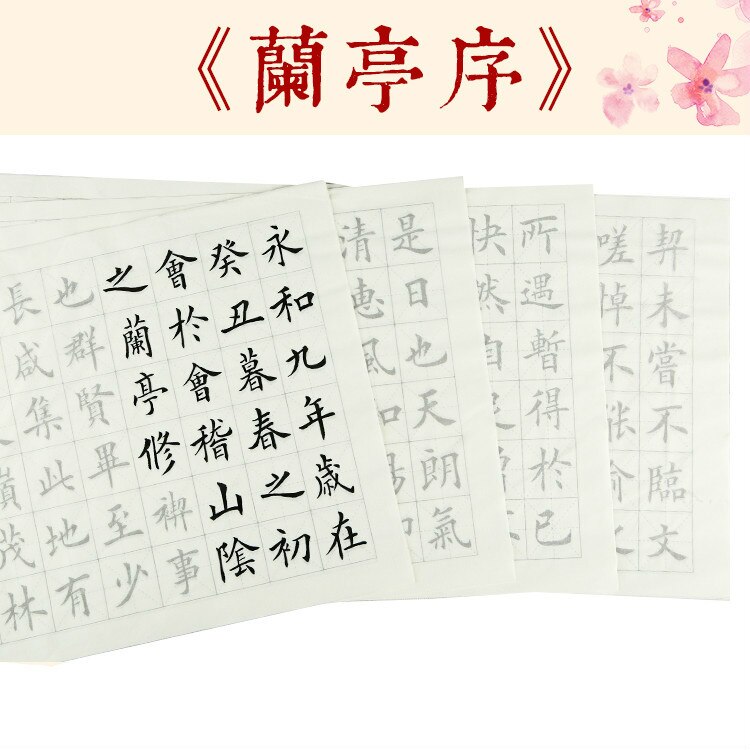 《蘭亭序》
永和九年歲在
癸丑暮春之初
會於會稽山陰
之蘭亭修禊事
也群賢畢至少
長咸集此地有
嶺茂林
是日也天朗氣
清惠風和
所遇暫得於己
快然自
契未嘗不臨文
嗟悼不